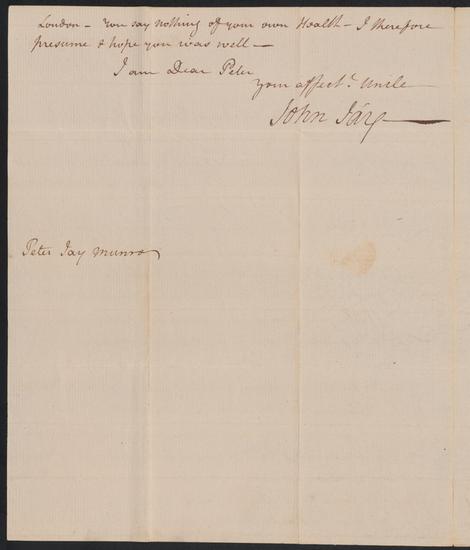 London – You say nothing of your own Health – I therefore
presume & hope you was well –
I am Dear Peter
your affect.^t Uncle
John Jay
Peter Jay Munro